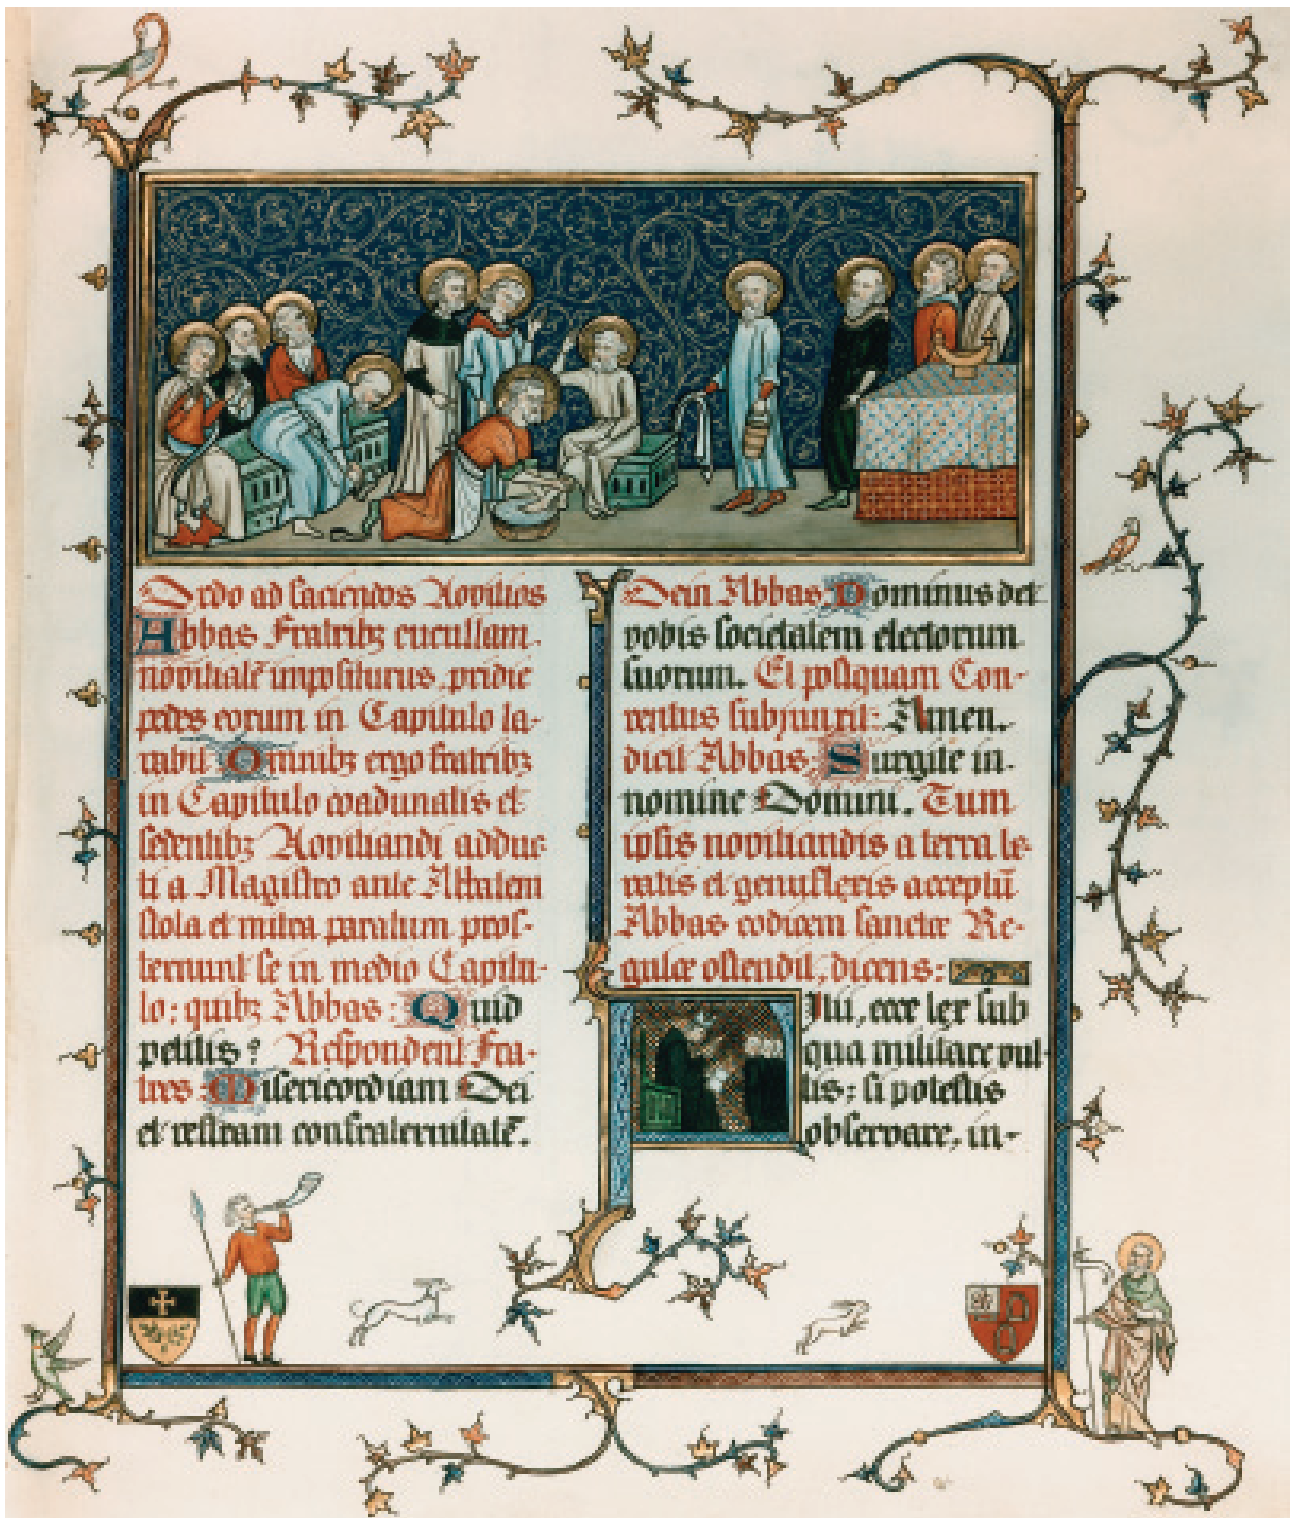 Ordo ad faciendos Novitios
Abbas Fratribꝫ cucullam
novitialē impositurus, pridie
pedes eorum in Capitulo la-
vabit. Omnibꝫ ergo fratribꝫ
in Capitulo coadunatis et
sedentibꝫ Novitiandi adduc
ti a Magistro ante Abbatem
stola et mitra paratum pros-
ternunt se in medio Capitu-
lo: quibꝫ Abbas: Quid
petitis? Respondent Fra-
tres: Misericordiam Dei
et vestram confraternitatē.
Dein Abbas: Dominus det
vobis societatem electorum
suorum. Et postquam Con-
ventus subjunxit: Amen.
dicit Abbas: Surgite in
nomine Domini. Tum
ipsis novitiandis a terra le-
vatis et genuflexis acceptū
Abbas codicem sanctæ Re-
gulæ ostendit, dicens:
Filii, ecce lex sub
qua militare vul-
tis: si potestis
observare, in-